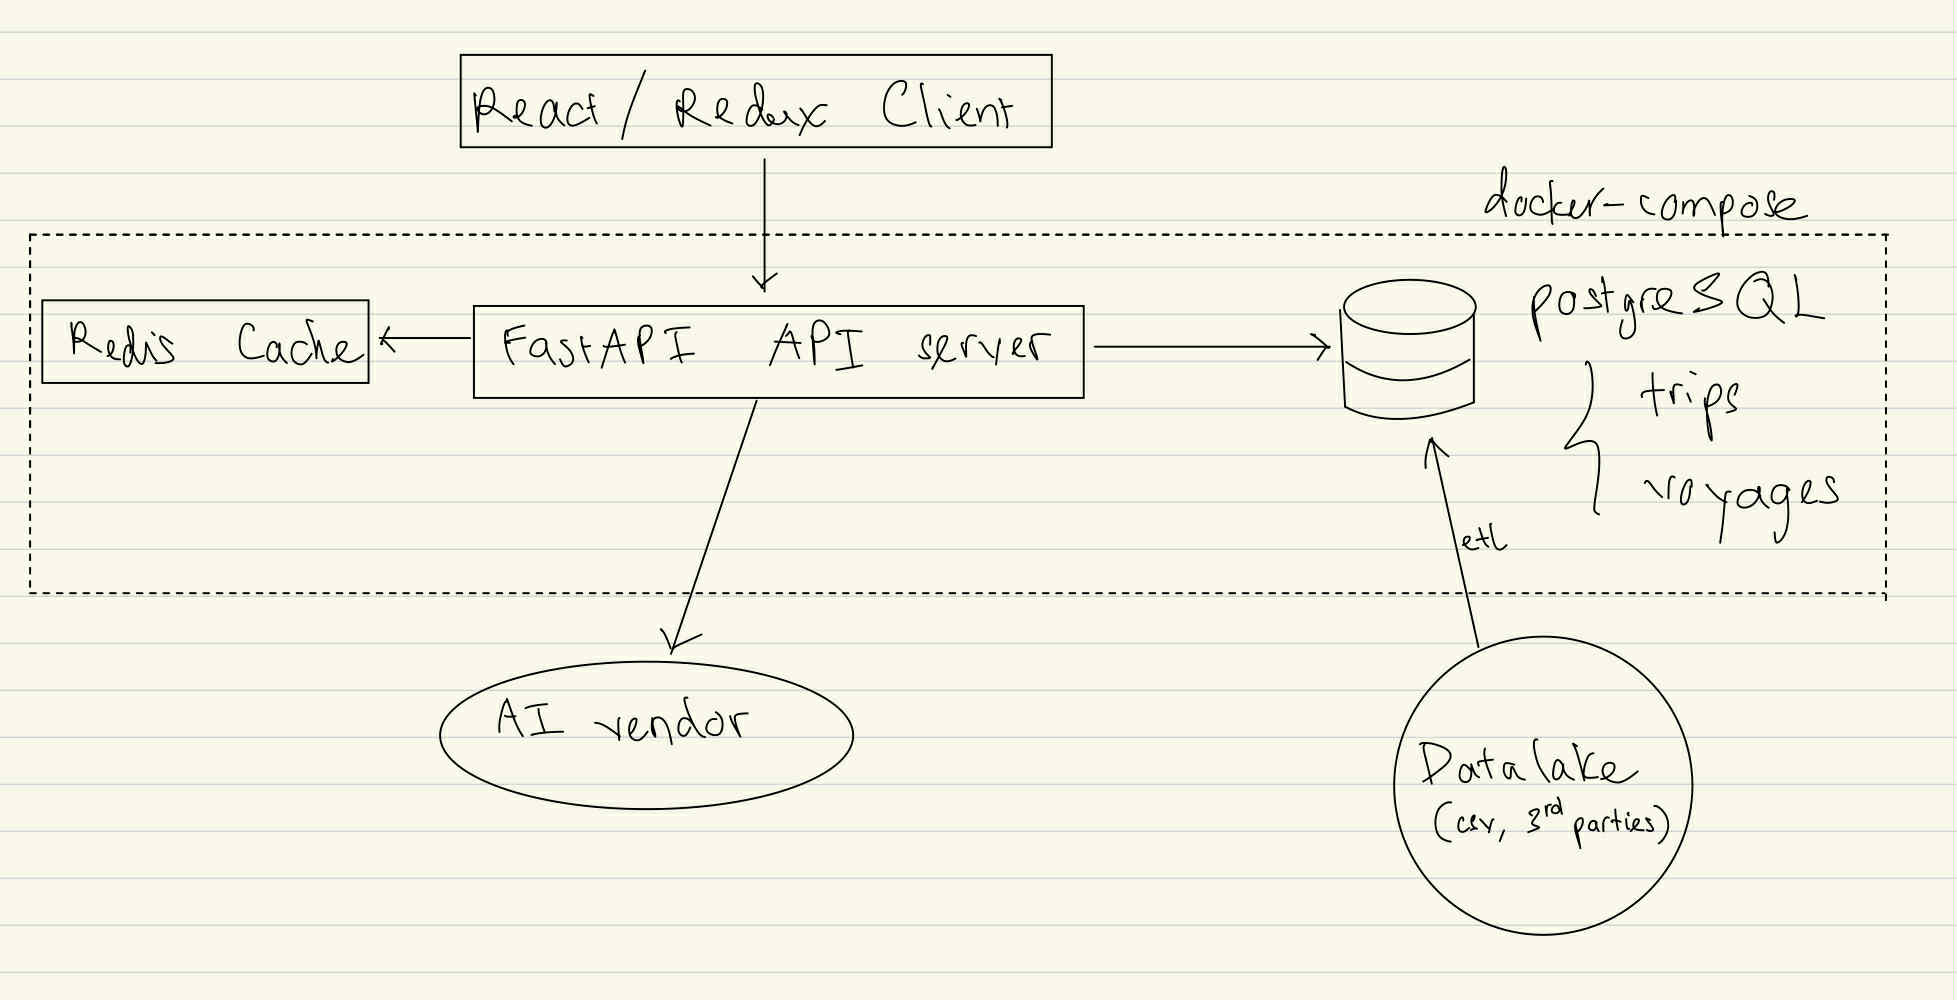 React / Redux Client
docker-compose
Redis Cache
FastAPI API server
postgreSQL
trips
voyages
etl
AI vendor
Datalake
(csv, 3rd parties)